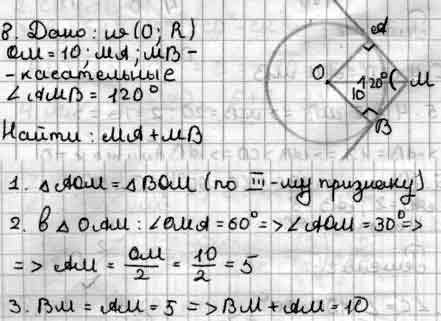 8. Дано: ця (O; R)
OM = 10; MA; MB -
- касательные
∠AMB = 120°
Найти: MA + MB
A
O
120°
10
M
B
1. △ AOM = △ BOM (по III-му признаку)
2. В △ OAM: ∠OMA = 60° => ∠AOM = 30° =>
=> AM = OM/2 = 10/2 = 5
3. BM = AM = 5 => BM + AM = 10